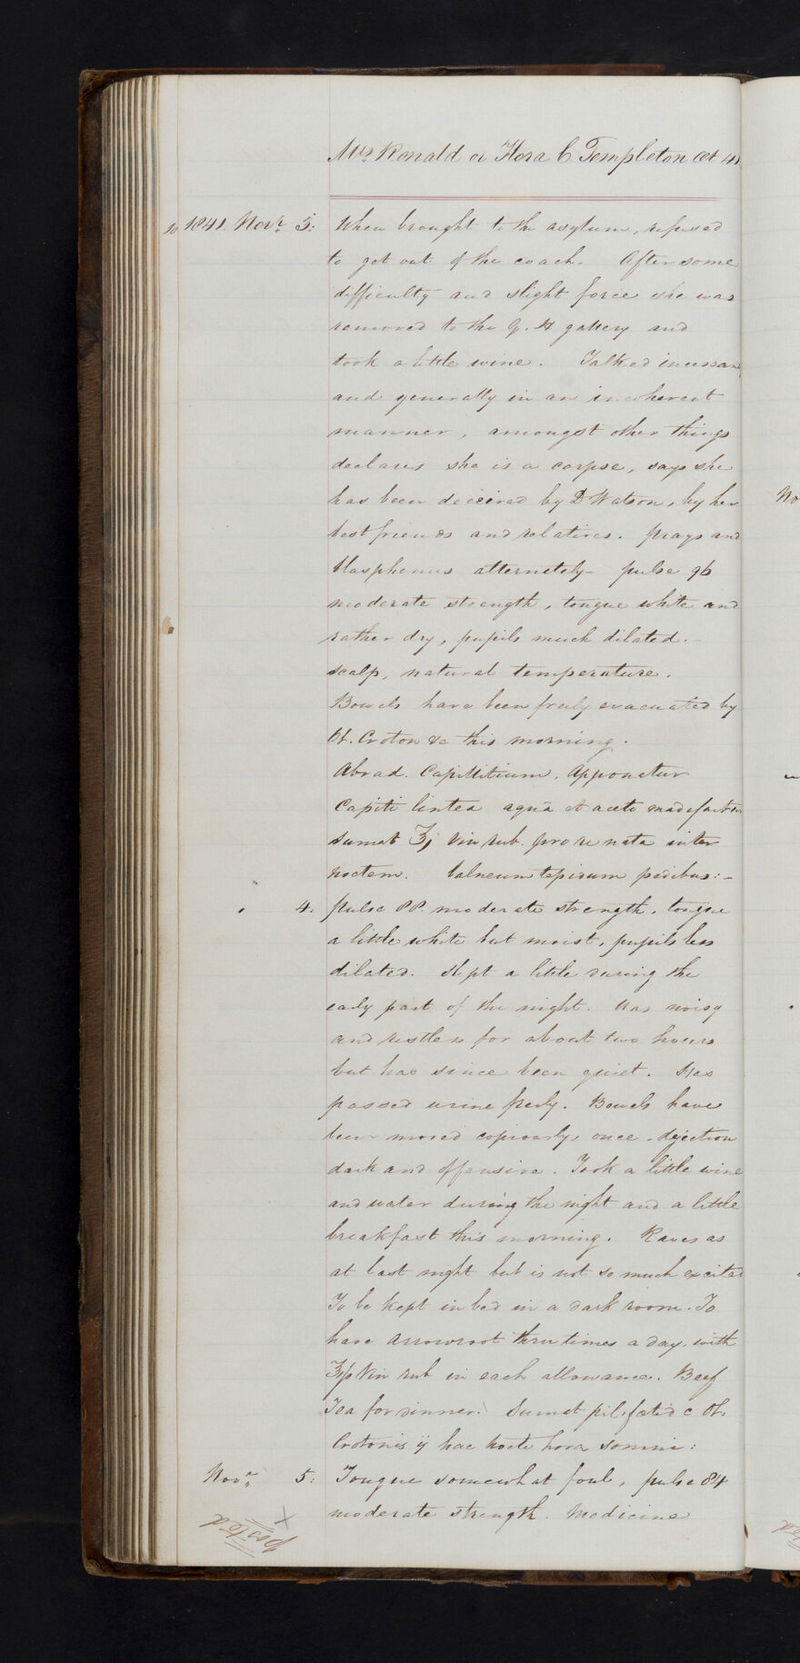 Mrs Ronald or Flora C Templeton aet 41
1841. Novr 3: When brought to the asylum, refused
to get out of the coach. After some
difficulty and slight force she was
removed to the gallery and
took a little wine. Talked incessan
and generally in an incoherent
manner, amongst other things
declares she is a corpse, says she
has been deceived by D Watson, by her
best friends and relatives. prays and
blasphemes alternately – pulse 96
moderate strength, tongue white and
rather dry, pupils much dilated. –
scalp, natural temperature.
Bowels have been freely evacuated by
Ol. Croton &c this morning.
Abrad. Capillitium. Apponatur
Capiti lintea aqua et aceto madefacta
Sumat ℥j Vin rub. pro re nata inter
noctem. balneum tepidum pedibus: –
4. pulse 88. moderate strength. tongue
a little white but moist, pupils less
dilated. Slept a little during the
early part of the night. Was noisy
and restless for about two hours
but has since been quiet. Has
passed urine freely. Bowels have
been moved copiously once – dejection
dark and offensive. Took a little wine
and water during the night and a little
breakfast this morning. Raves as
at last night but is not so much excited
To be kept in bed in a dark room. To
have arrowroot three times a day. with
℥fs Vin rub in each allowance. Beef
Tea for dinner. Sumat pil. foetid c Ol.
Crotonis ij hac nocte hora somni:
Novr 5: Tongue somewhat foul, pulse 84
moderate strength. Medicine
posted X
No